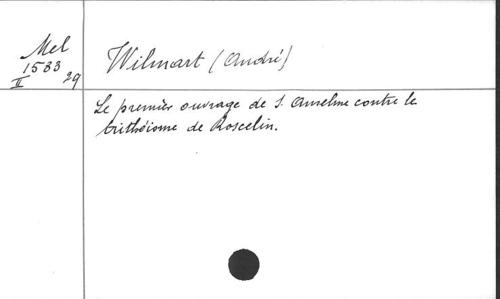 Mel
1533
II 29
Wilmart (André)
Le premier ouvrage de S. Anselme contre le
trithéisme de Roscelin.